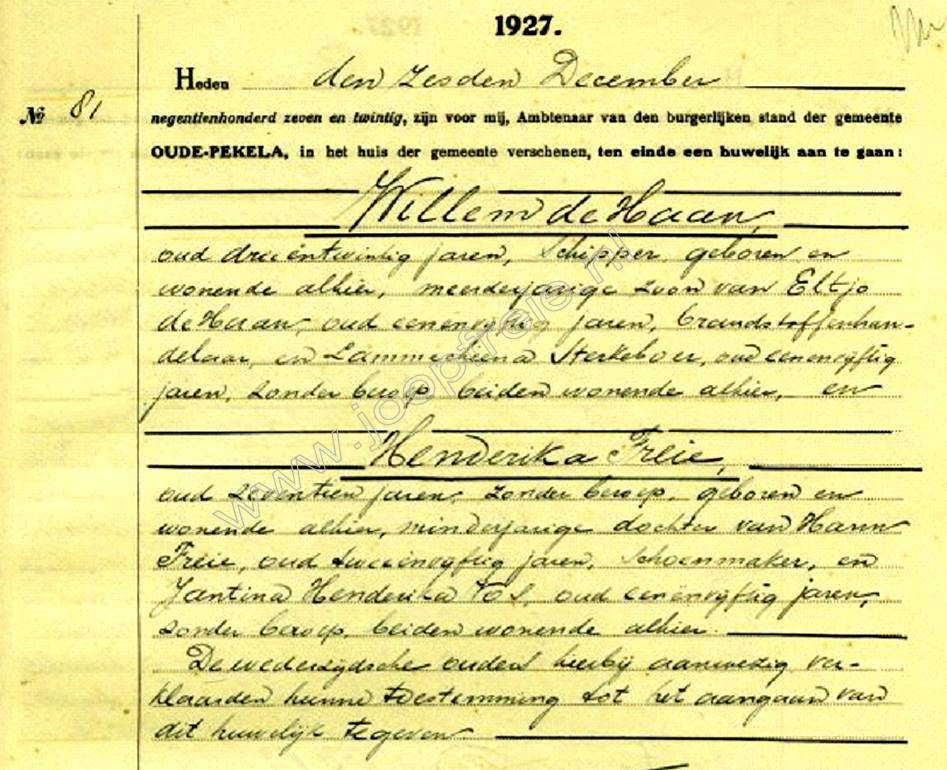 1927.
Heden den zesden December
№ 81
negentienhonderd zeven en twintig, zijn voor mij, Ambtenaar van den burgerlijken stand der gemeente
OUDE-PEKELA, in het huis der gemeente verschenen, ten einde een huwelijk aan te gaan:
Willem de Haan,
oud drieëntwintig jaren, Schipper, geboren en
wonende alhier, meerderjarige zoon van Eltjo
de Haan, oud eenenvijftig jaren, brandstoffenhan-
delaar, en Lammechiena Sterkeboer, oud eenenvijftig
jaren, zonder beroep, beiden wonende alhier, en
Henderika Freie,
oud zeventien jaren, zonder beroep, geboren en
wonende alhier, minderjarige dochter van Harm
Freie, oud tweeenvijftig jaren, Schoenmaker, en
Jantina Henderika Vos, oud eenenvijftig jaren,
zonder beroep, beiden wonende alhier.
De wederzijdsche ouders hierbij aanwezig ver-
klaarden hunne toestemming tot het aangaan van
dit huwelijk te geven
www.joopfreie.nl